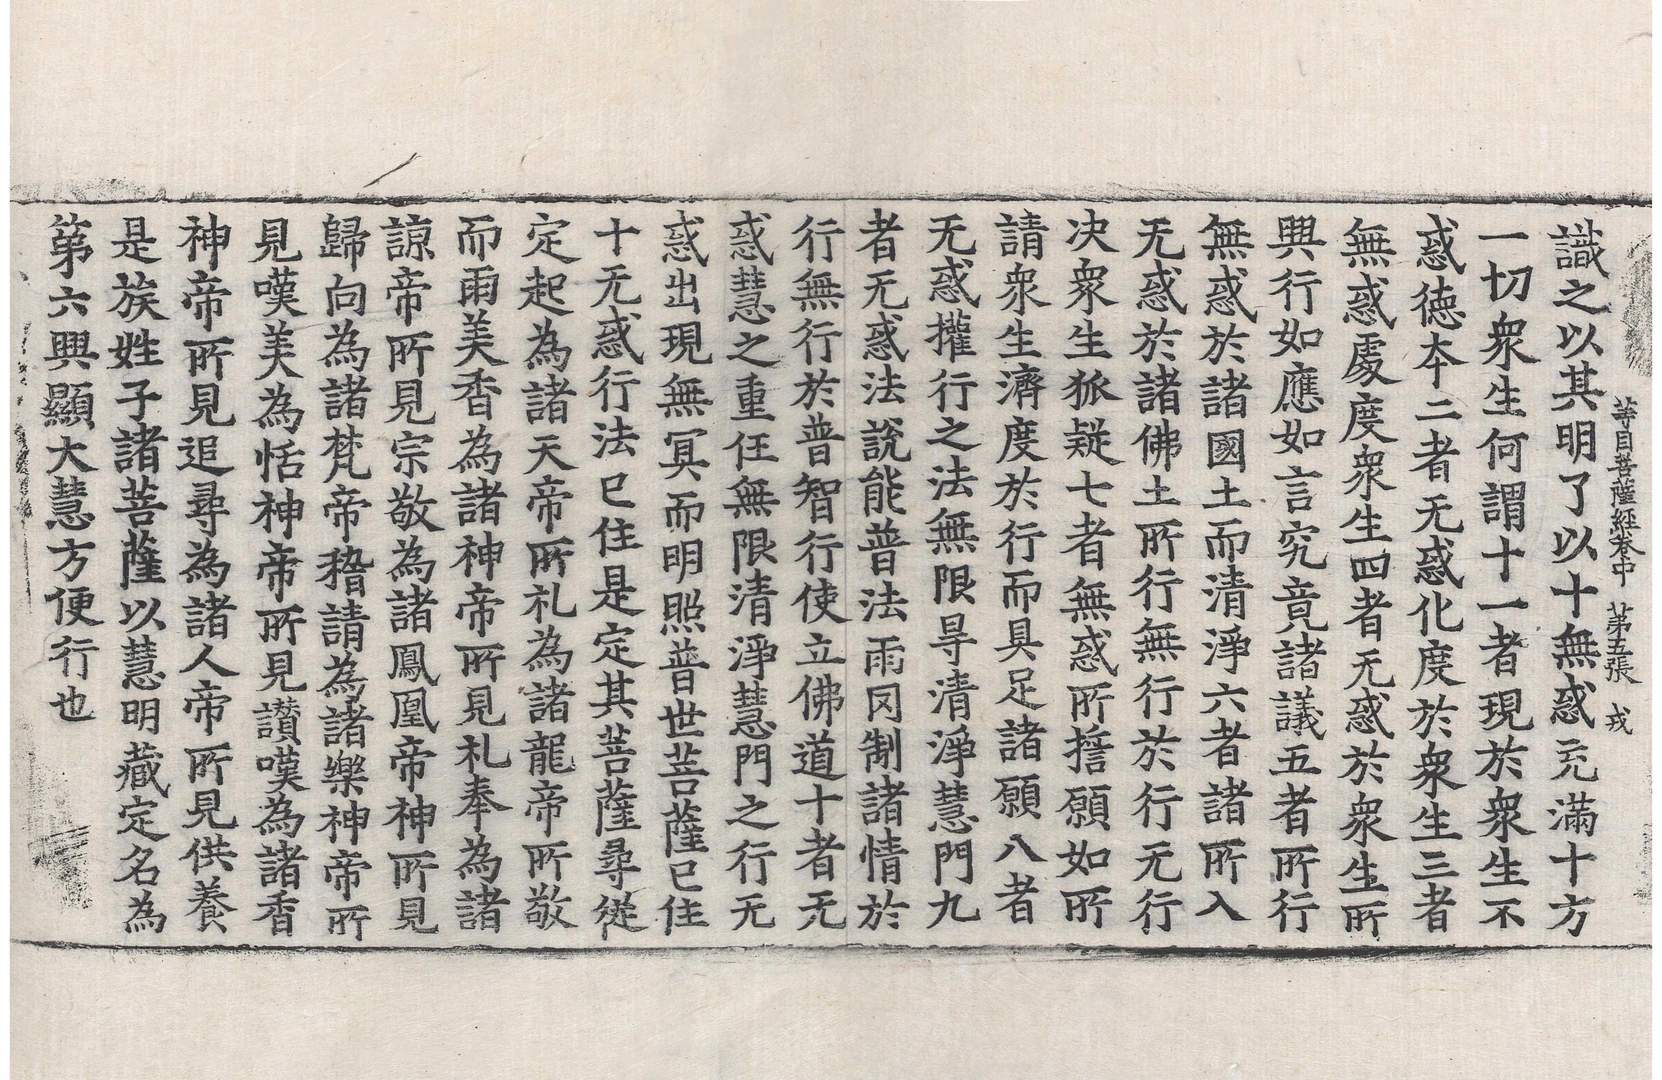 等目菩薩經卷中　第五張　戎
識之以其明了以十無惑充滿十方
一切衆生何謂十一者現於衆生不
惑德本二者无惑化度於衆生三者
無惑處度衆生四者无惑於衆生所
興行如應如言究竟諸議五者所行
無惑於諸國土而清淨六者諸所入
无惑於諸佛土所行無行於行无行
决衆生狐疑七者無惑所擔願如所
請衆生濟度於行而具足諸願八者
无惑權行之法無限导清淨慧門九
者无惑法說能普法雨罔制諸情於
行無行於普智行使立佛道十者无
惑慧之重任無限清淨慧門之行无
惑出現無冥而明照普世菩薩已住
十无惑行法已住是定其菩薩尋從
定起為諸天帝所礼為諸龍帝所敬
而雨美香為諸神帝所見札奉為諸
諒帝所見宗敬為諸鳳凰帝神所見
歸向為諸梵帝稽請為諸樂神帝所
見嘆美為恬神帝所見讃嘆為諸香
神帝所見追尋為諸人帝所見供養
是族姓子諸菩薩以慧明藏定名為
第六興顯大慧方便行也